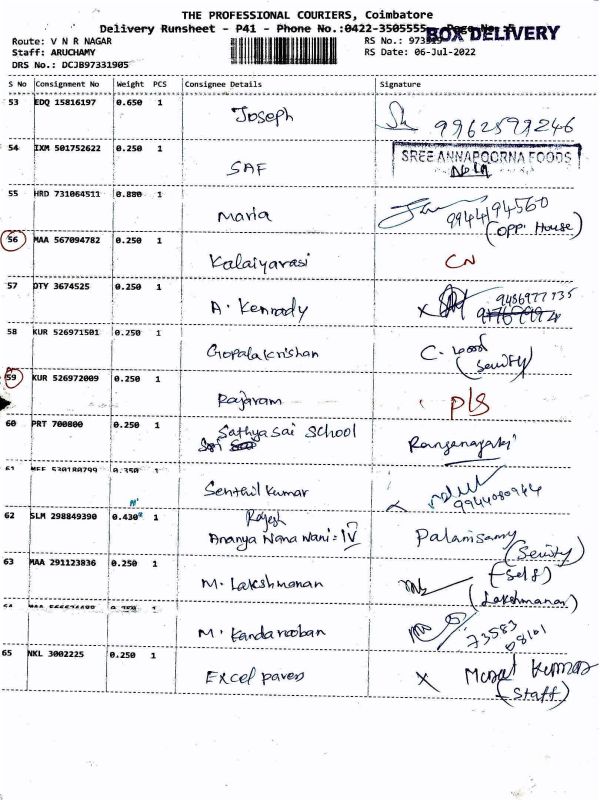 THE PROFESSIONAL COURIERS, Coimbatore
Delivery Runsheet - P41 - Phone No.:0422-3505555
BOX DELIVERY
Route: V N R NAGAR
Staff: ARUCHAMY
RS No.:
DRS No.: DCJB97331905
RS Date: 06-Jul-2022
S No Consignment No Weight PCS Consignee Details Signature
53 EDQ 15816197 0.650 1
Joseph
54 IXM 501752622 0.250 1
SREE ANNAPOORNA FOODS
SAF
55 HRD 731064511 0.880 1
Maria 9944194560
(opp. House)
56 MAA 567094782 0.250 1
Kalaiyarasi CN
57 DTY 3674525 0.250 1
A. Kennady X
58 KUR 526971501 0.250 1
Gopalakrishan C.
59 KUR 526972009 0.250 1
Rajaram P/S
60 PRT 700800 0.250 1
Sathya Sai School
Ranganayaki
61 0.350 1
Senthil Kumar 9944080944
62 SLM 298849390 0.430 1
Rajesh
Palanisamy
63 MAA 291123836 0.250 1
(Self)
M. Lakshmanan (Lakshmanan)
M. Kandarooban 73583
08101
65 NKL 3002225 0.250 1
Excel paves X Kumar
(Staff)